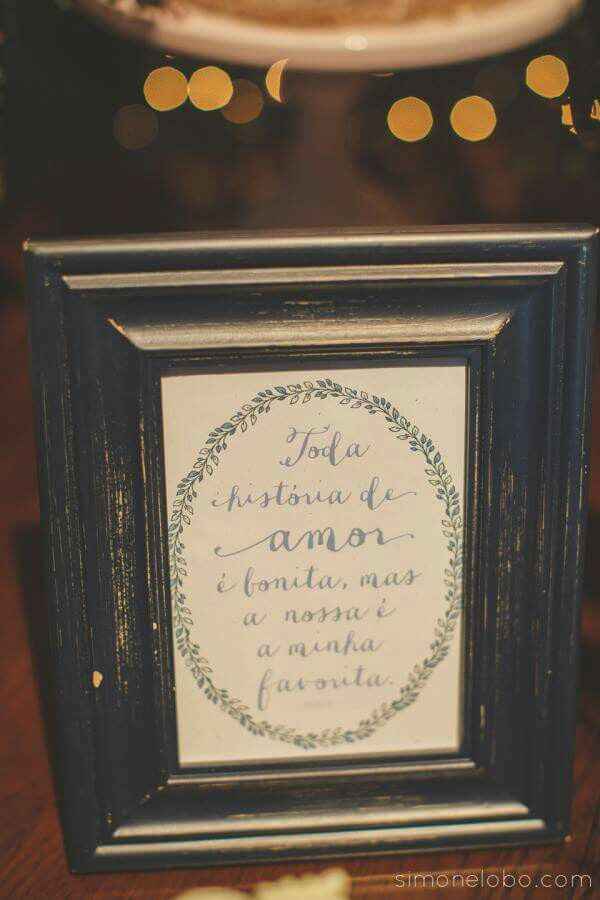 Toda
história de
amor
é bonita, mas
a nossa é
a minha
favorita.
simonelobo.com